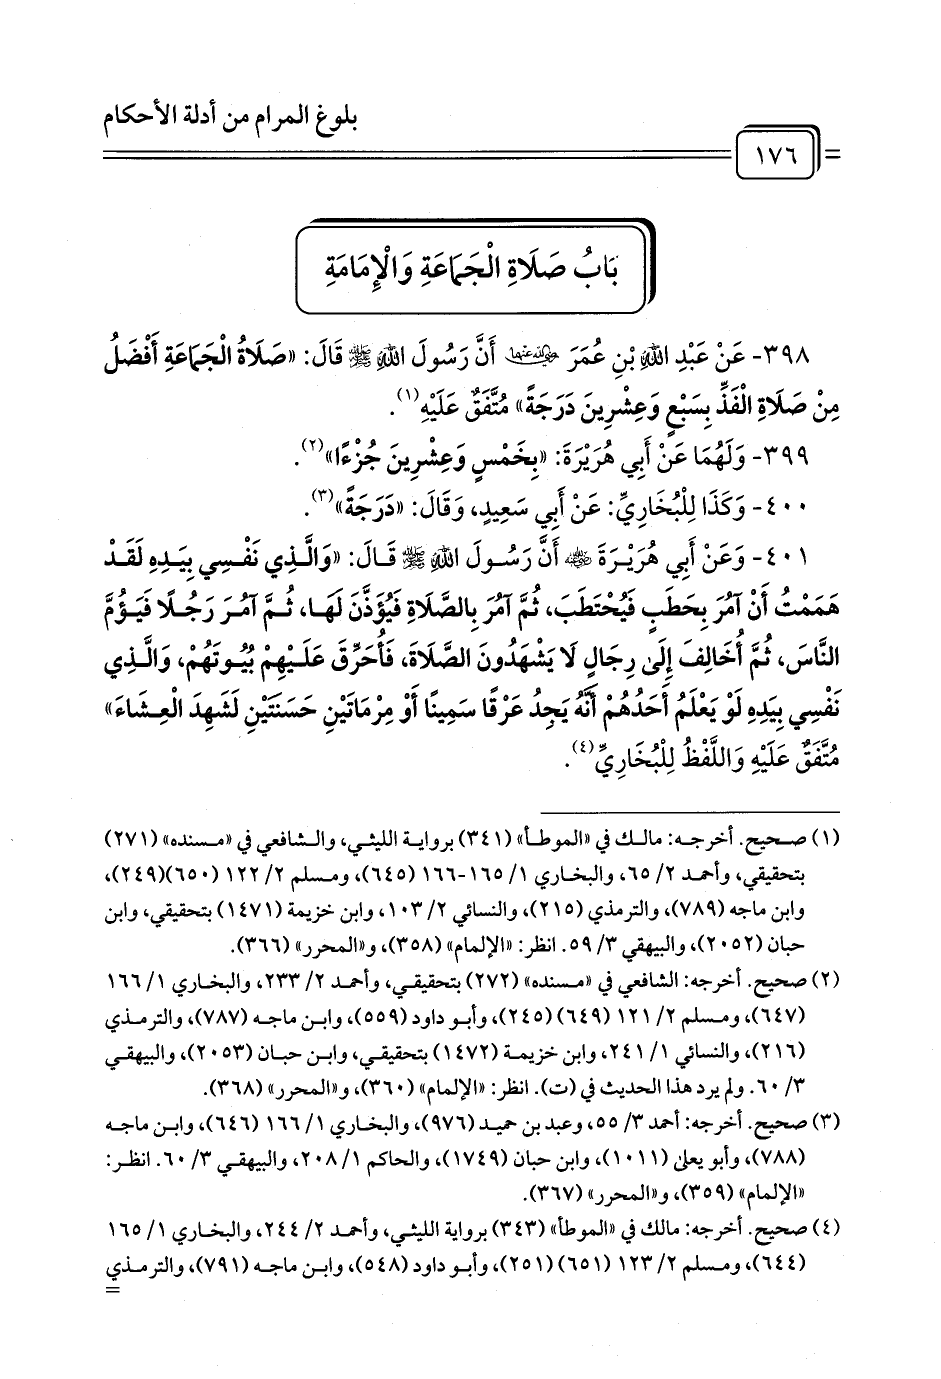 بلوغ المرام من أدلة الأحكام
١٧٦
بَابُ صَلَاةِ الْجَمَاعَةِ وَالْإِمَامَةِ
٣٩٨- عَنْ عَبْدِ اللهِ بْنِ عُمَرَ رضي الله عنهما أَنَّ رَسُولَ اللهِ ﷺ قَالَ: «صَلَاةُ الْجَمَاعَةِ أَفْضَلُ
مِنْ صَلَاةِ الْفَذِّ بِسَبْعٍ وَعِشْرِينَ دَرَجَةً» مُتَّفَقٌ عَلَيْهِ(١).
٣٩٩- وَلَهُمَا عَنْ أَبِي هُرَيْرَةَ: «بِخَمْسٍ وَعِشْرِينَ جُزْءًا»(٢).
٤٠٠- وَكَذَا لِلْبُخَارِيِّ: عَنْ أَبِي سَعِيدٍ، وَقَالَ: «دَرَجَةً»(٣).
٤٠١- وَعَنْ أَبِي هُرَيْرَةَ رضي الله عنه أَنَّ رَسُولَ اللهِ ﷺ قَالَ: «وَالَّذِي نَفْسِي بِيَدِهِ لَقَدْ
هَمَمْتُ أَنْ آمُرَ بِحَطَبٍ فَيُحْتَطَبَ، ثُمَّ آمُرَ بِالصَّلَاةِ فَيُؤَذَّنَ لَهَا، ثُمَّ آمُرَ رَجُلًا فَيَؤُمَّ
النَّاسَ، ثُمَّ أُخَالِفَ إِلَى رِجَالٍ لَا يَشْهَدُونَ الصَّلَاةَ، فَأُحَرِّقَ عَلَيْهِمْ بُيُوتَهُمْ، وَالَّذِي
نَفْسِي بِيَدِهِ لَوْ يَعْلَمُ أَحَدُهُمْ أَنَّهُ يَجِدُ عَرْقًا سَمِينًا أَوْ مِرْمَاتَيْنِ حَسَنَتَيْنِ لَشَهِدَ الْعِشَاءَ»
مُتَّفَقٌ عَلَيْهِ وَاللَّفْظُ لِلْبُخَارِيِّ(٤).
(١) صحيح. أخرجه: مالك في «الموطأ» (٣٤١) برواية الليثي، والشافعي في «مسنده» (٢٧١)
بتحقيقي، وأحمد ٢/ ٦٥، والبخاري ١/ ١٦٥-١٦٦ (٦٤٥)، ومسلم ٢/ ١٢٢ (٦٥٠)(٢٤٩)،
وابن ماجه (٧٨٩)، والترمذي (٢١٥)، والنسائي ٢/ ١٠٣، وابن خزيمة (١٤٧١) بتحقيقي، وابن
حبان (٢٠٥٢)، والبيهقي ٣/ ٥٩. انظر: «الإلمام» (٣٥٨)، و«المحرر» (٣٦٦).
(٢) صحيح. أخرجه: الشافعي في «مسنده» (٢٧٢) بتحقيقي، وأحمد ٢/ ٢٣٣، والبخاري ١/ ١٦٦
(٦٤٧)، ومسلم ٢/ ١٢١ (٦٤٩) (٢٤٥)، وأبو داود (٥٥٩)، وابن ماجه (٧٨٧)، والترمذي
(٢١٦)، والنسائي ١/ ٢٤١، وابن خزيمة (١٤٧٢) بتحقيقي، وابن حبان (٢٠٥٣)، والبيهقي
٣/ ٦٠. ولم يرد هذا الحديث في (ت). انظر: «الإلمام» (٣٦٠)، و«المحرر» (٣٦٨).
(٣) صحيح. أخرجه: أحمد ٣/ ٥٥، وعبد بن حميد (٩٧٦)، والبخاري ١/ ١٦٦ (٦٤٦)، وابن ماجه
(٧٨٨)، وأبو يعلى (١٠١١)، وابن حبان (١٧٤٩)، والحاكم ١/ ٢٠٨، والبيهقي ٣/ ٦٠. انظر:
«الإلمام» (٣٥٩)، و«المحرر» (٣٦٧).
(٤) صحيح. أخرجه: مالك في «الموطأ» (٣٤٣) برواية الليثي، وأحمد ٢/ ٢٤٤، والبخاري ١/ ١٦٥
(٦٤٤)، ومسلم ٢/ ١٢٣ (٦٥١) (٢٥١)، وأبو داود (٥٤٨)، وابن ماجه (٧٩١)، والترمذي
=